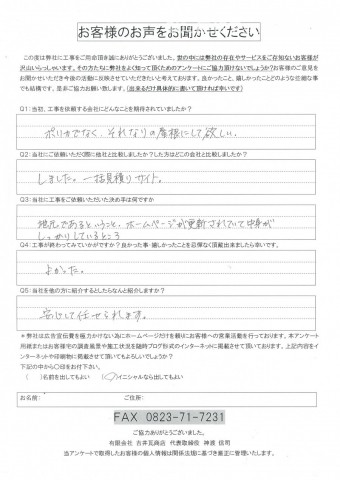 お客様のお声をお聞かせください
この度は弊社に工事をご用命頂き誠にありがとうございました。世の中には弊社の存在やサービスをご存知ないお客様が
沢山いらっしゃいます。その方たちに弊社をよく知って頂くためのアンケートにご協力頂けないでしょうか？お客様のご意見を
お聞かせいただき今後の活動に反映させていただきたいと考えております。良かったこと、嬉しかったことどのような些細な事
でも結構です。是非ご協力お願い致します。(出来るだけ具体的に書いて頂ければ幸いです)
Q1：当初、工事を依頼する会社にどんなことを期待されていましたか？
ボリカでなく、それなりの屋根にして欲しい。
Q2：当社にご依頼いただく際に他社と比較しましたか？した方はどこの会社と比較しましたか？
しました。一括見積りサイト。
Q3：当社に工事をご依頼いただいた決め手は何ですか
地元であるということ、ホームページが更新されていて中身が
しっかりしているところ
Q4：工事が終わってみていかがですか？良かった事・嬉しかったことを忌憚なく頂戴出来ましたら幸いです。
よかった。
Q5：当社を他の方に紹介するとしたらなんと紹介しますか？
安心して任せられます。
＊弊社は広告宣伝費を極力かけない為にホームページだけを頼りにお客様への営業活動を行っております。本アンケート
用紙またはお客様宅の調査風景や施工状況を随時ブログ形式のインターネットに掲載させて頂いております。上記内容をイ
ンターネットや印刷物に掲載させて頂いてもよろしいでしょうか？
下記の中から〇印をお付下さい。
( )名前を出してもよい (〇)イニシャルなら出してもよい
お名前： ご住所：
FAX 0823-71-7231
ご協力ありがとうございました。
有限会社 吉井瓦商店 代表取締役 神渡 信司
当アンケートで取得したお客様の個人情報は関係法規に基づき厳正に管理いたします。